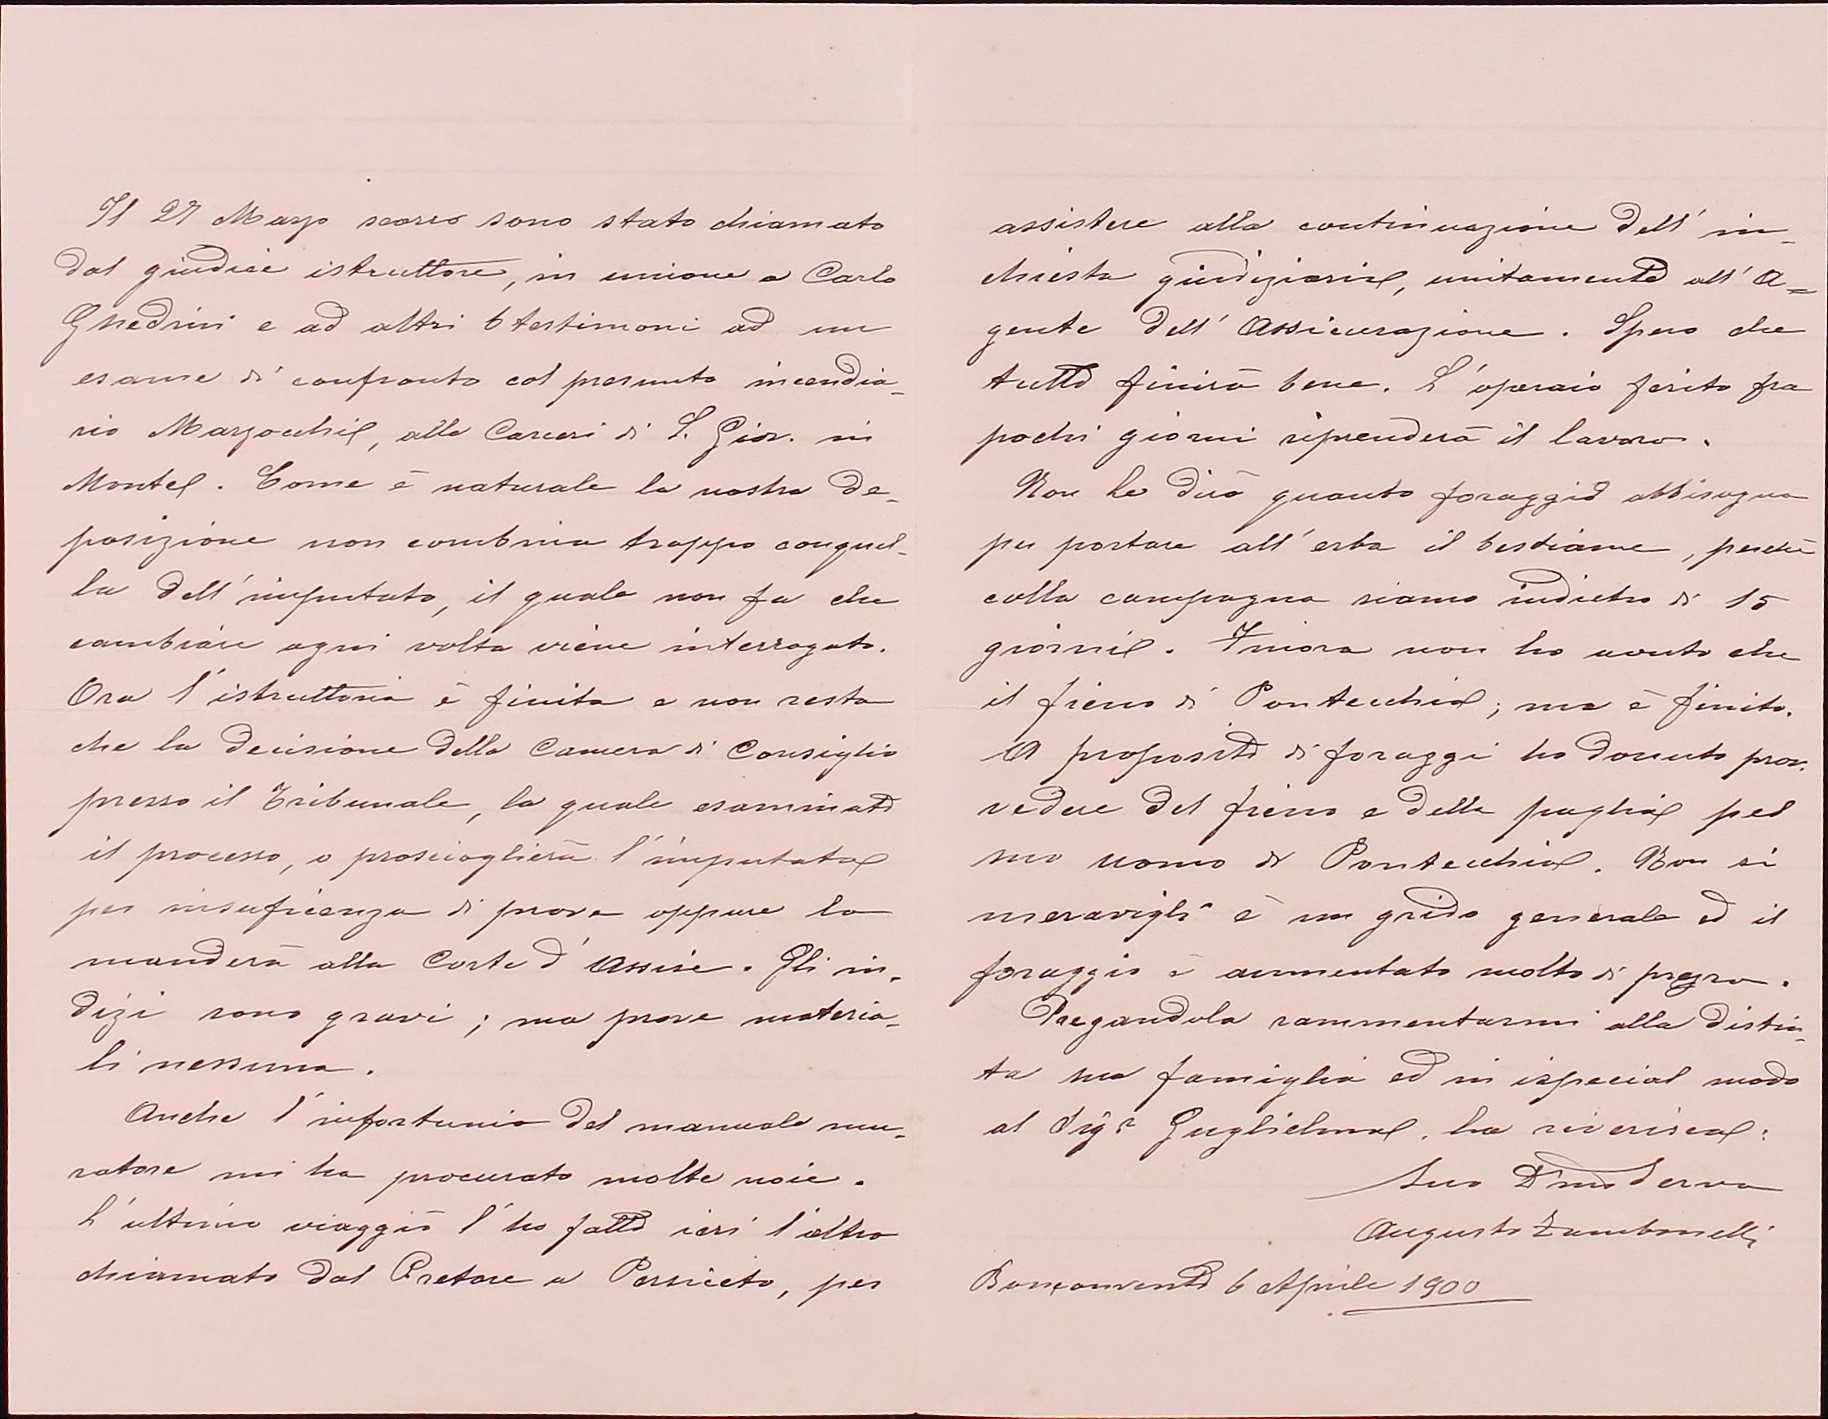 Il 27 Marzo scorso sono stato chiamato
dal giudice istruttore, in unione a Carlo
Ghedini e ad altri 6 testimoni ad un
esame di confronto col presunto incendia-
rio Marzocchi, alle Carceri di S. Giov. in
Monte. Come è naturale la nostra de-
posizione non combina troppo conquel-
la dell'imputato, il quale non fa che
cambiare ogni volta viene interrogato.
Ora l'istruttoria è finita e non resta
che la decisione della Camera di Consiglio
presso il Tribunale, la quale esaminato
il processo, o proscioglierà l'imputato
per insuficenza di prove oppure lo
manderà alla Corte d'Assise. Gli in-
dizi sono gravi; ma prove materia-
li nessuna.
Anche l'infortunio del manuale mu-
ratore mi ha procurato molte noie.
L'ultimo viaggio l'ho fatto ieri l'altro
chiamato dal Pretore a Persiceto, per
assistere alla continuazione dell'in-
chiesta giudiziaria, unitamente all'A=
gente dell'Assicurazione. Spero che
tutto finirà bene. L'operaio ferito fra
pochi giorni riprenderà il lavoro.
Non Le dirò quanto foraggio abbisogna
per portare all'erba il bestiame, perchè
colla campagna siamo indietro di 15
giorni. Finora non ho avuto che
il fieno di Pontecchio; ma è finito.
A proposito di foraggi ho dovuto prov-
vedere del fieno e della paglia pel
suo uomo di Pontecchio. Non si
meravigli è un grido generale ed il
foraggio è aumentato molto di prezzo.
Pregandola rammentarmi alla distin-
ta sua famiglia ed in ispecial modo
al Sigr Guglielmo. La riverisco:
Suo Dmo Servo
Augusto Zambonelli
Bonconvento 6 Aprile 1900